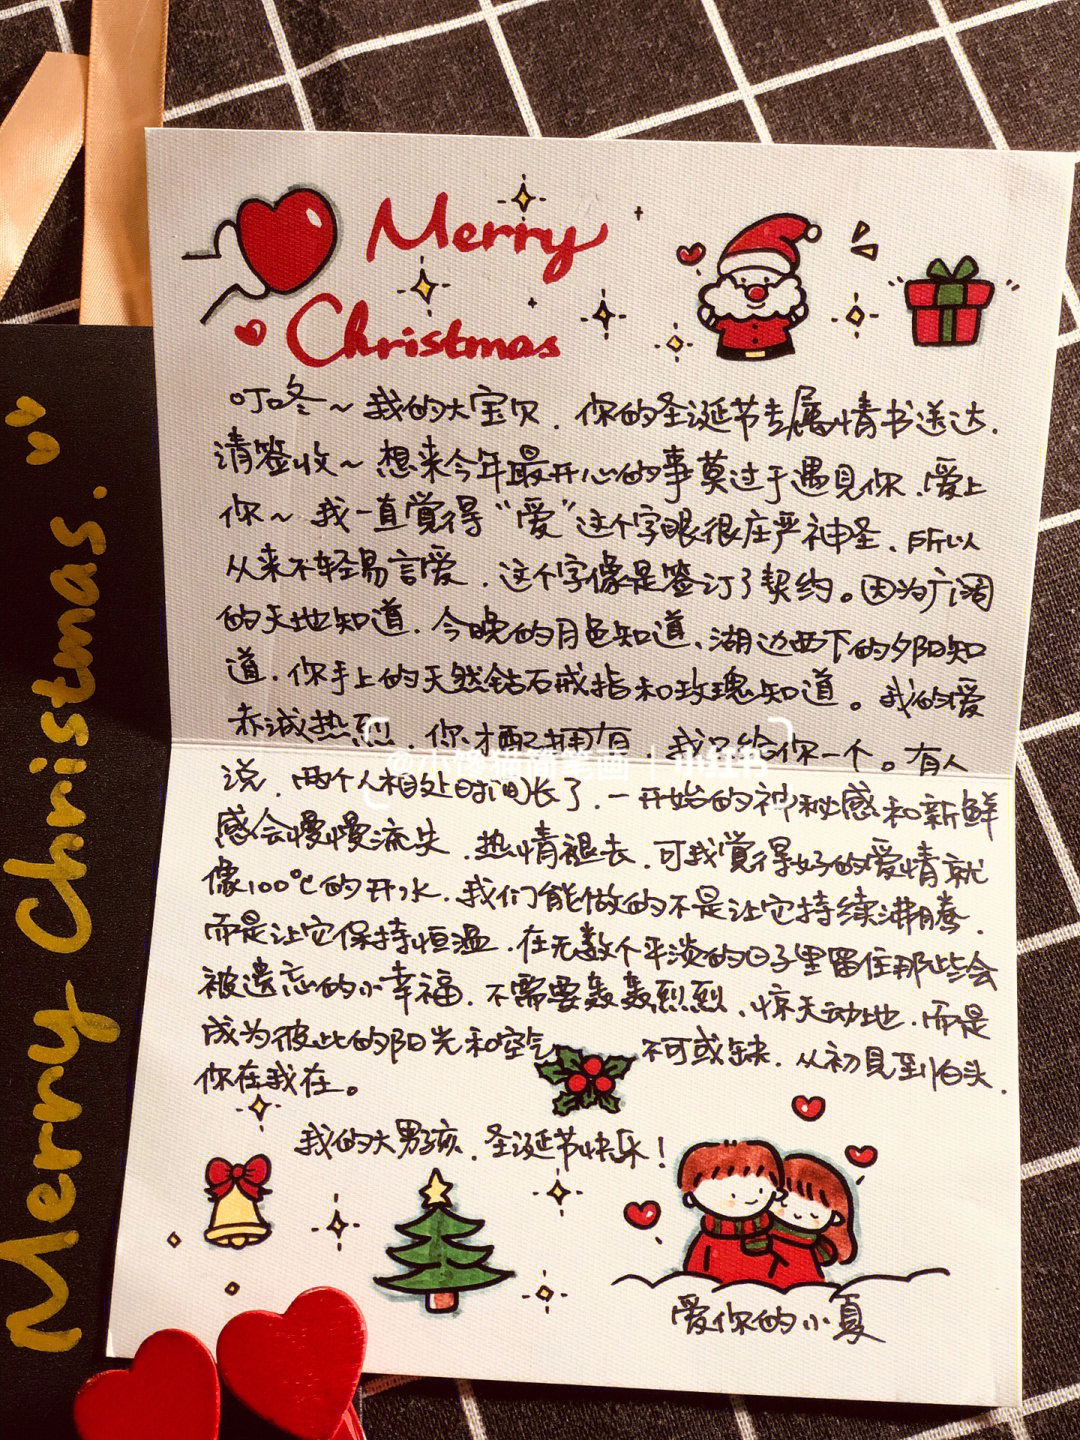 Merry
Christmas
叮咚~我的大宝贝.你的圣诞节专属情书送达.
请签收~想来今年最开心的事莫过于遇见你、爱上
你~我一直觉得“爱”这个字眼很庄严神圣、所以
从来不轻易言爱.这个字像是签订了契约。因为广阔
的天地知道.今晚的月色知道、湖边西下的夕阳知
道.你手上的天然钻石戒指和玫瑰知道。我的爱
赤诚热烈.你才配拥有.我只给你一个。有人
说.两个人相处时间长了.一开始的神秘感和新鲜
感会慢慢流失.热情褪去.可我觉得好的爱情就
像100℃的开水.我们能做的不是让它持续沸腾.
而是让它保持恒温.在无数个平淡的日子里留住那些会
被遗忘的小幸福.不需要轰轰烈烈、惊天动地.而是
成为彼此的阳光和空气 不可或缺.从初见到白头.
你在我在。
我的大男孩、圣诞节快乐!
爱你的小夏
Merry Christmas.
@小熊猫简笔画 | 小红书